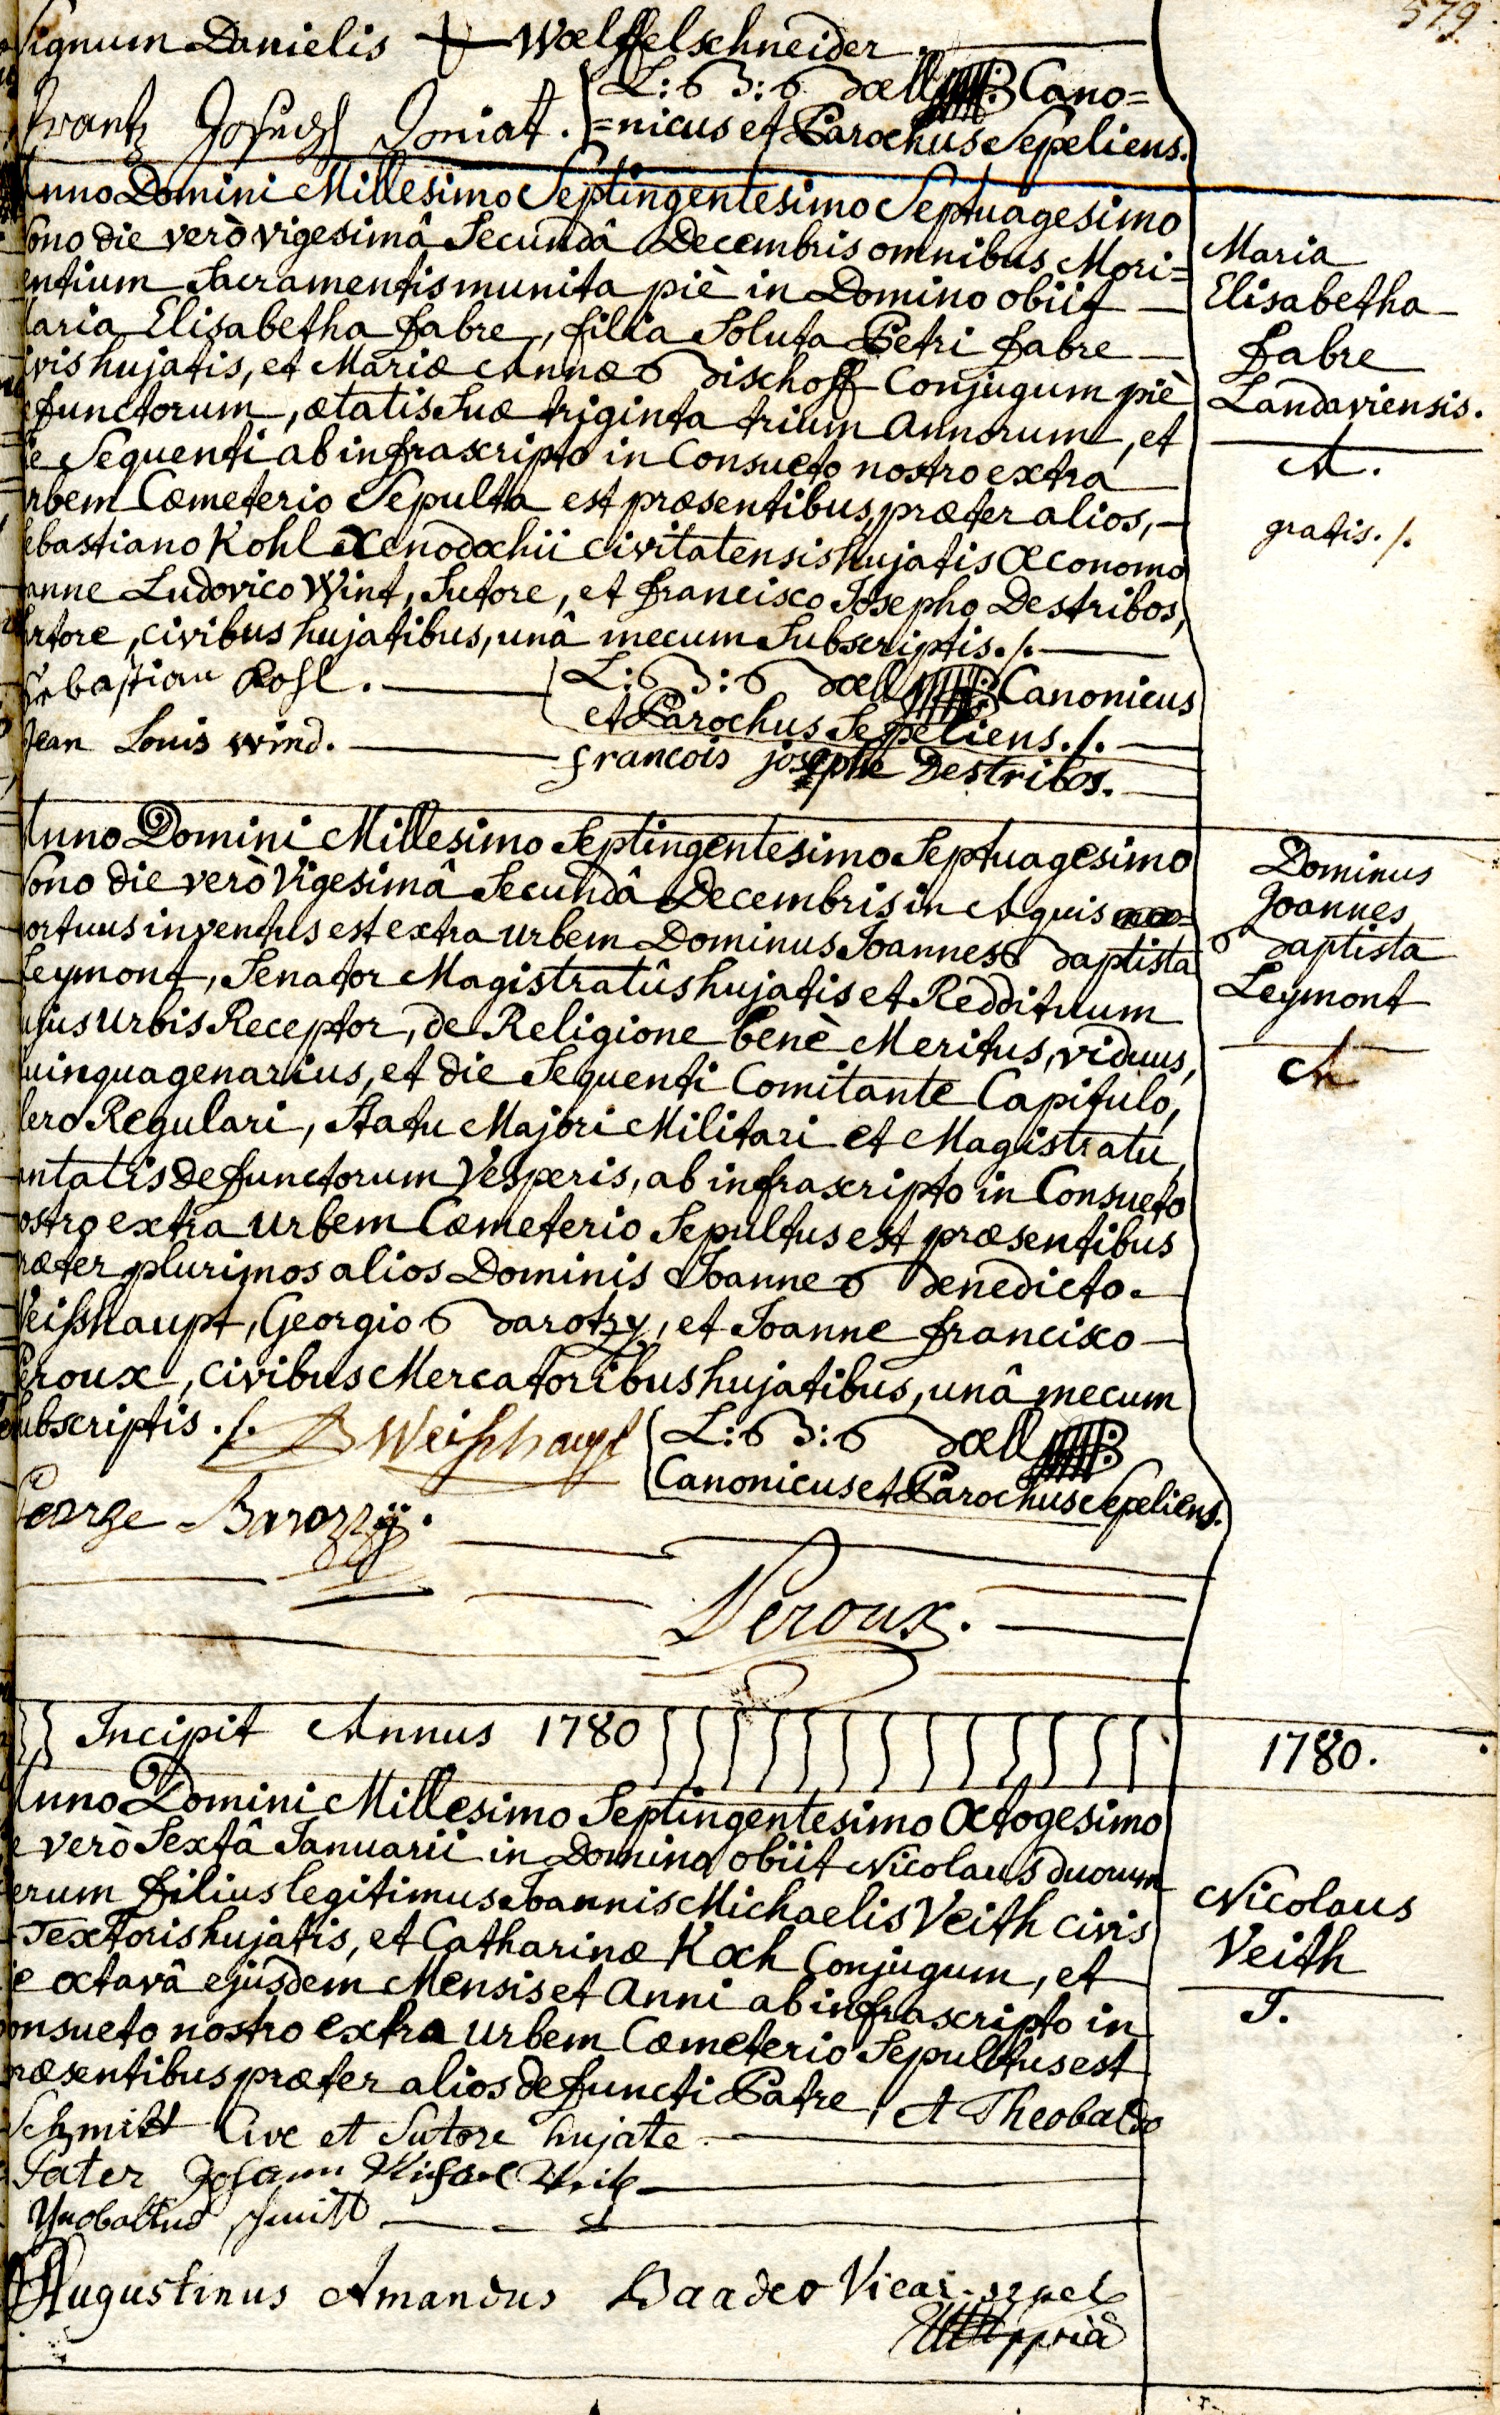 579.
Signum Danielis + Wœlffelschneider.
L: B: Bœll Cano=
Frantz Joseph Doniat. =nicus et Parochus Sepeliens.
Anno Domini Millesimo Septingentesimo Septuagesimo
Nono die verò vigesimâ Secundâ Decembris omnibus Mori=
entium Sacramentis munita piè in Domino obiit
Maria Elisabetha Fabre, filia Soluta Petri Fabre
civis hujatis, et Mariæ Annæ Bischoff Conjugum piè
defunctorum, ætatis Suæ triginta trium Annorum, et
die Sequenti ab infrascripto in Consueto nostro extra
urbem Cœmeterio Sepulta est præsentibus, præter alios,
Sebastiano Kohl Xenodochii civitatensis hujatis Œconomo
Joanne Ludovico Wint, Sutore, et Francisco Josepho Destribos,
Sartore, civibus hujatibus, unâ mecum Subscriptis ./.
Sebastian Kohl. L: B: Bœll Canonicus
et Parochus Sepeliens ./.
Jean Louis wind.
francois josephe Destribos.
Maria
Elisabetha
Fabre
Landaviensis.
A.
gratis ./.
Anno Domini Millesimo Septingentesimo Septuagesimo
Nono die verò Vigesimâ Secundâ Decembris in Aquis
mortuus inventus est extra urbem Dominus Joannes Baptista
Leymont, Senator Magistratûs hujatis et Reddituum
hujus Urbis Receptor, de Religione benè Meritus, viduus,
quinquagenarius, et die Sequenti Comitante Capitulo,
Clero Regulari, Statu Majori Militari et Magistratu,
cantatis defunctorum Vesperis, ab infrascripto in Consueto
nostro extra urbem Cœmeterio Sepultus est præsentibus
præter plurimos alios Dominis Joanne Benedicto
Weißhaupt, Georgio Barotzy, et Joanne Francisco
Peroux, civibus Mercatoribus hujatibus, unâ mecum
Subscriptis ./. B Weißhaupt L: B: Bœll
Canonicus et Parochus Sepeliens.
George Barozzÿ.
Peroux.
Dominus
Joannes
Baptista
Leymont
A
Incipit Annus 1780
1780.
Anno Domini Millesimo Septingentesimo Octogesimo
die verò Sextâ Januarii in Domino obiit Nicolaus duorum
dierum filius legitimus Joannis Michaelis Veith civis
Textoris hujatis, et Catharinæ Koch Conjugum, et
die octavâ ejusdem Mensis et Anni ab infrascripto in
Consueto nostro extra urbem Cœmeterio Sepultus est
præsentibus præter alios defuncti Patre, et Theobaldo
Schmitt Cive et Sutore hujate
Pater Johann Michael Veith
Theobaltus Schmitt
Augustinus Amandus Baader Vicar. sepel
ppriâ
Nicolaus
Veith
J.